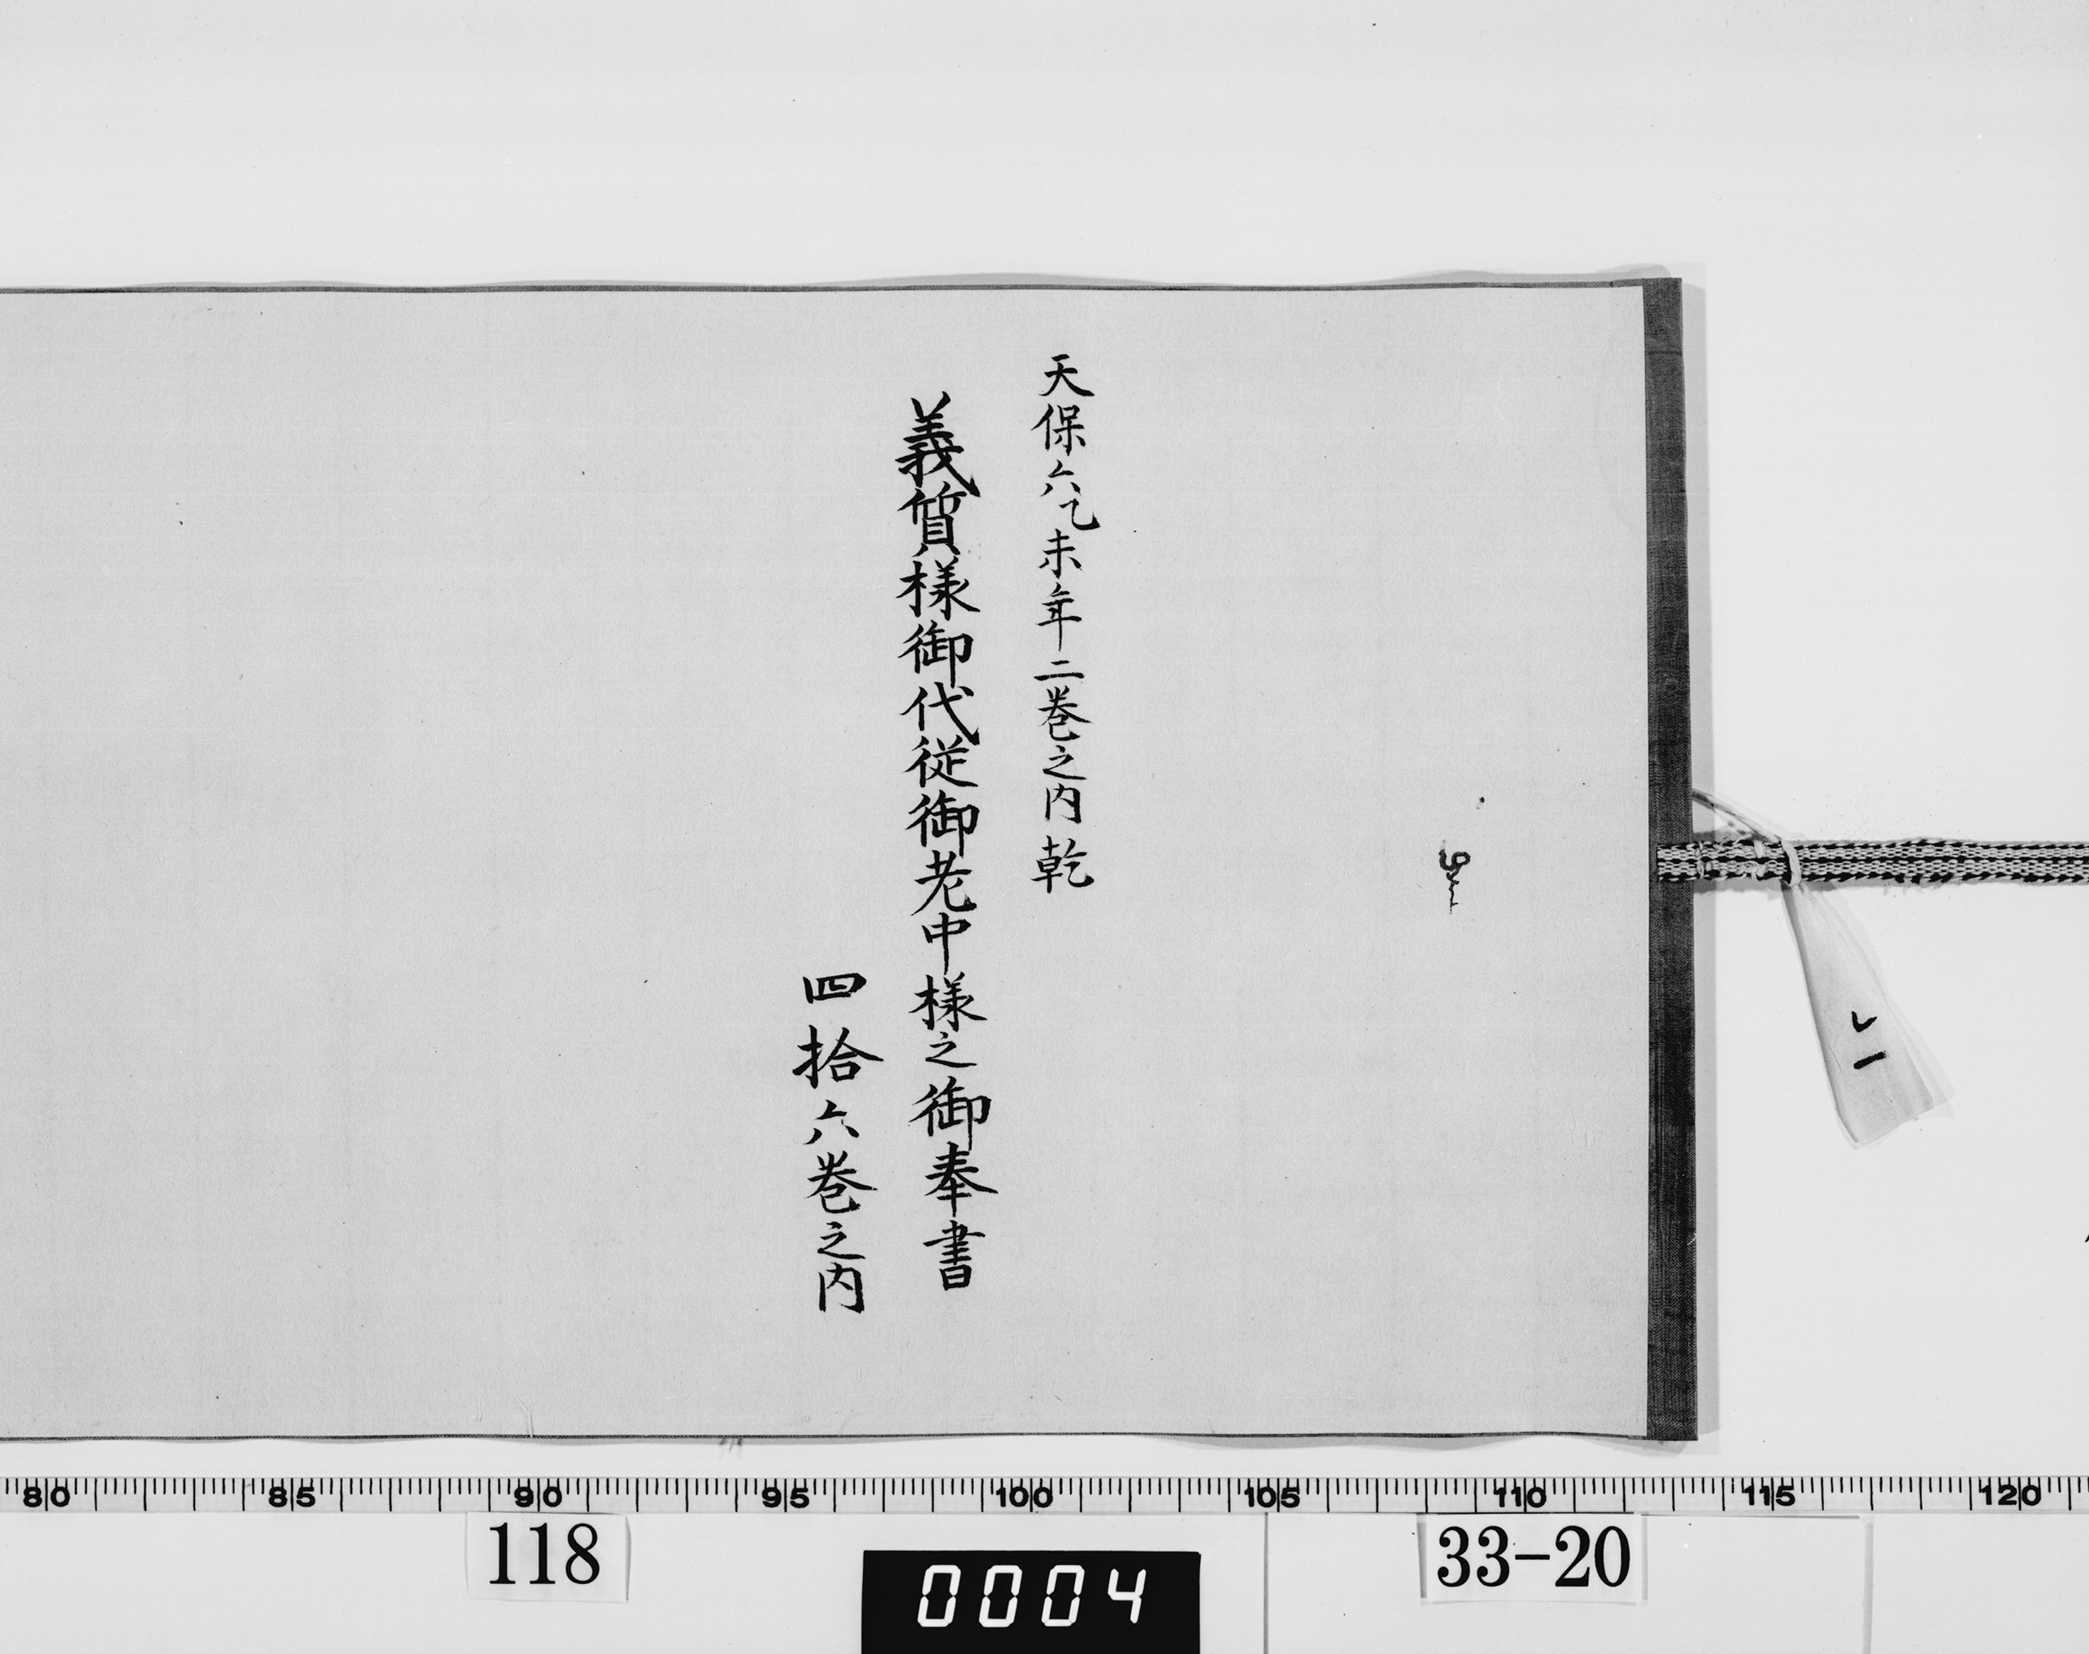 天保六乙未年二巻之内乾
義質様御代従御老中様之御奉書
四拾六巻之内
80 85 90 95 100 105 110 115 120
118
0004
33-20